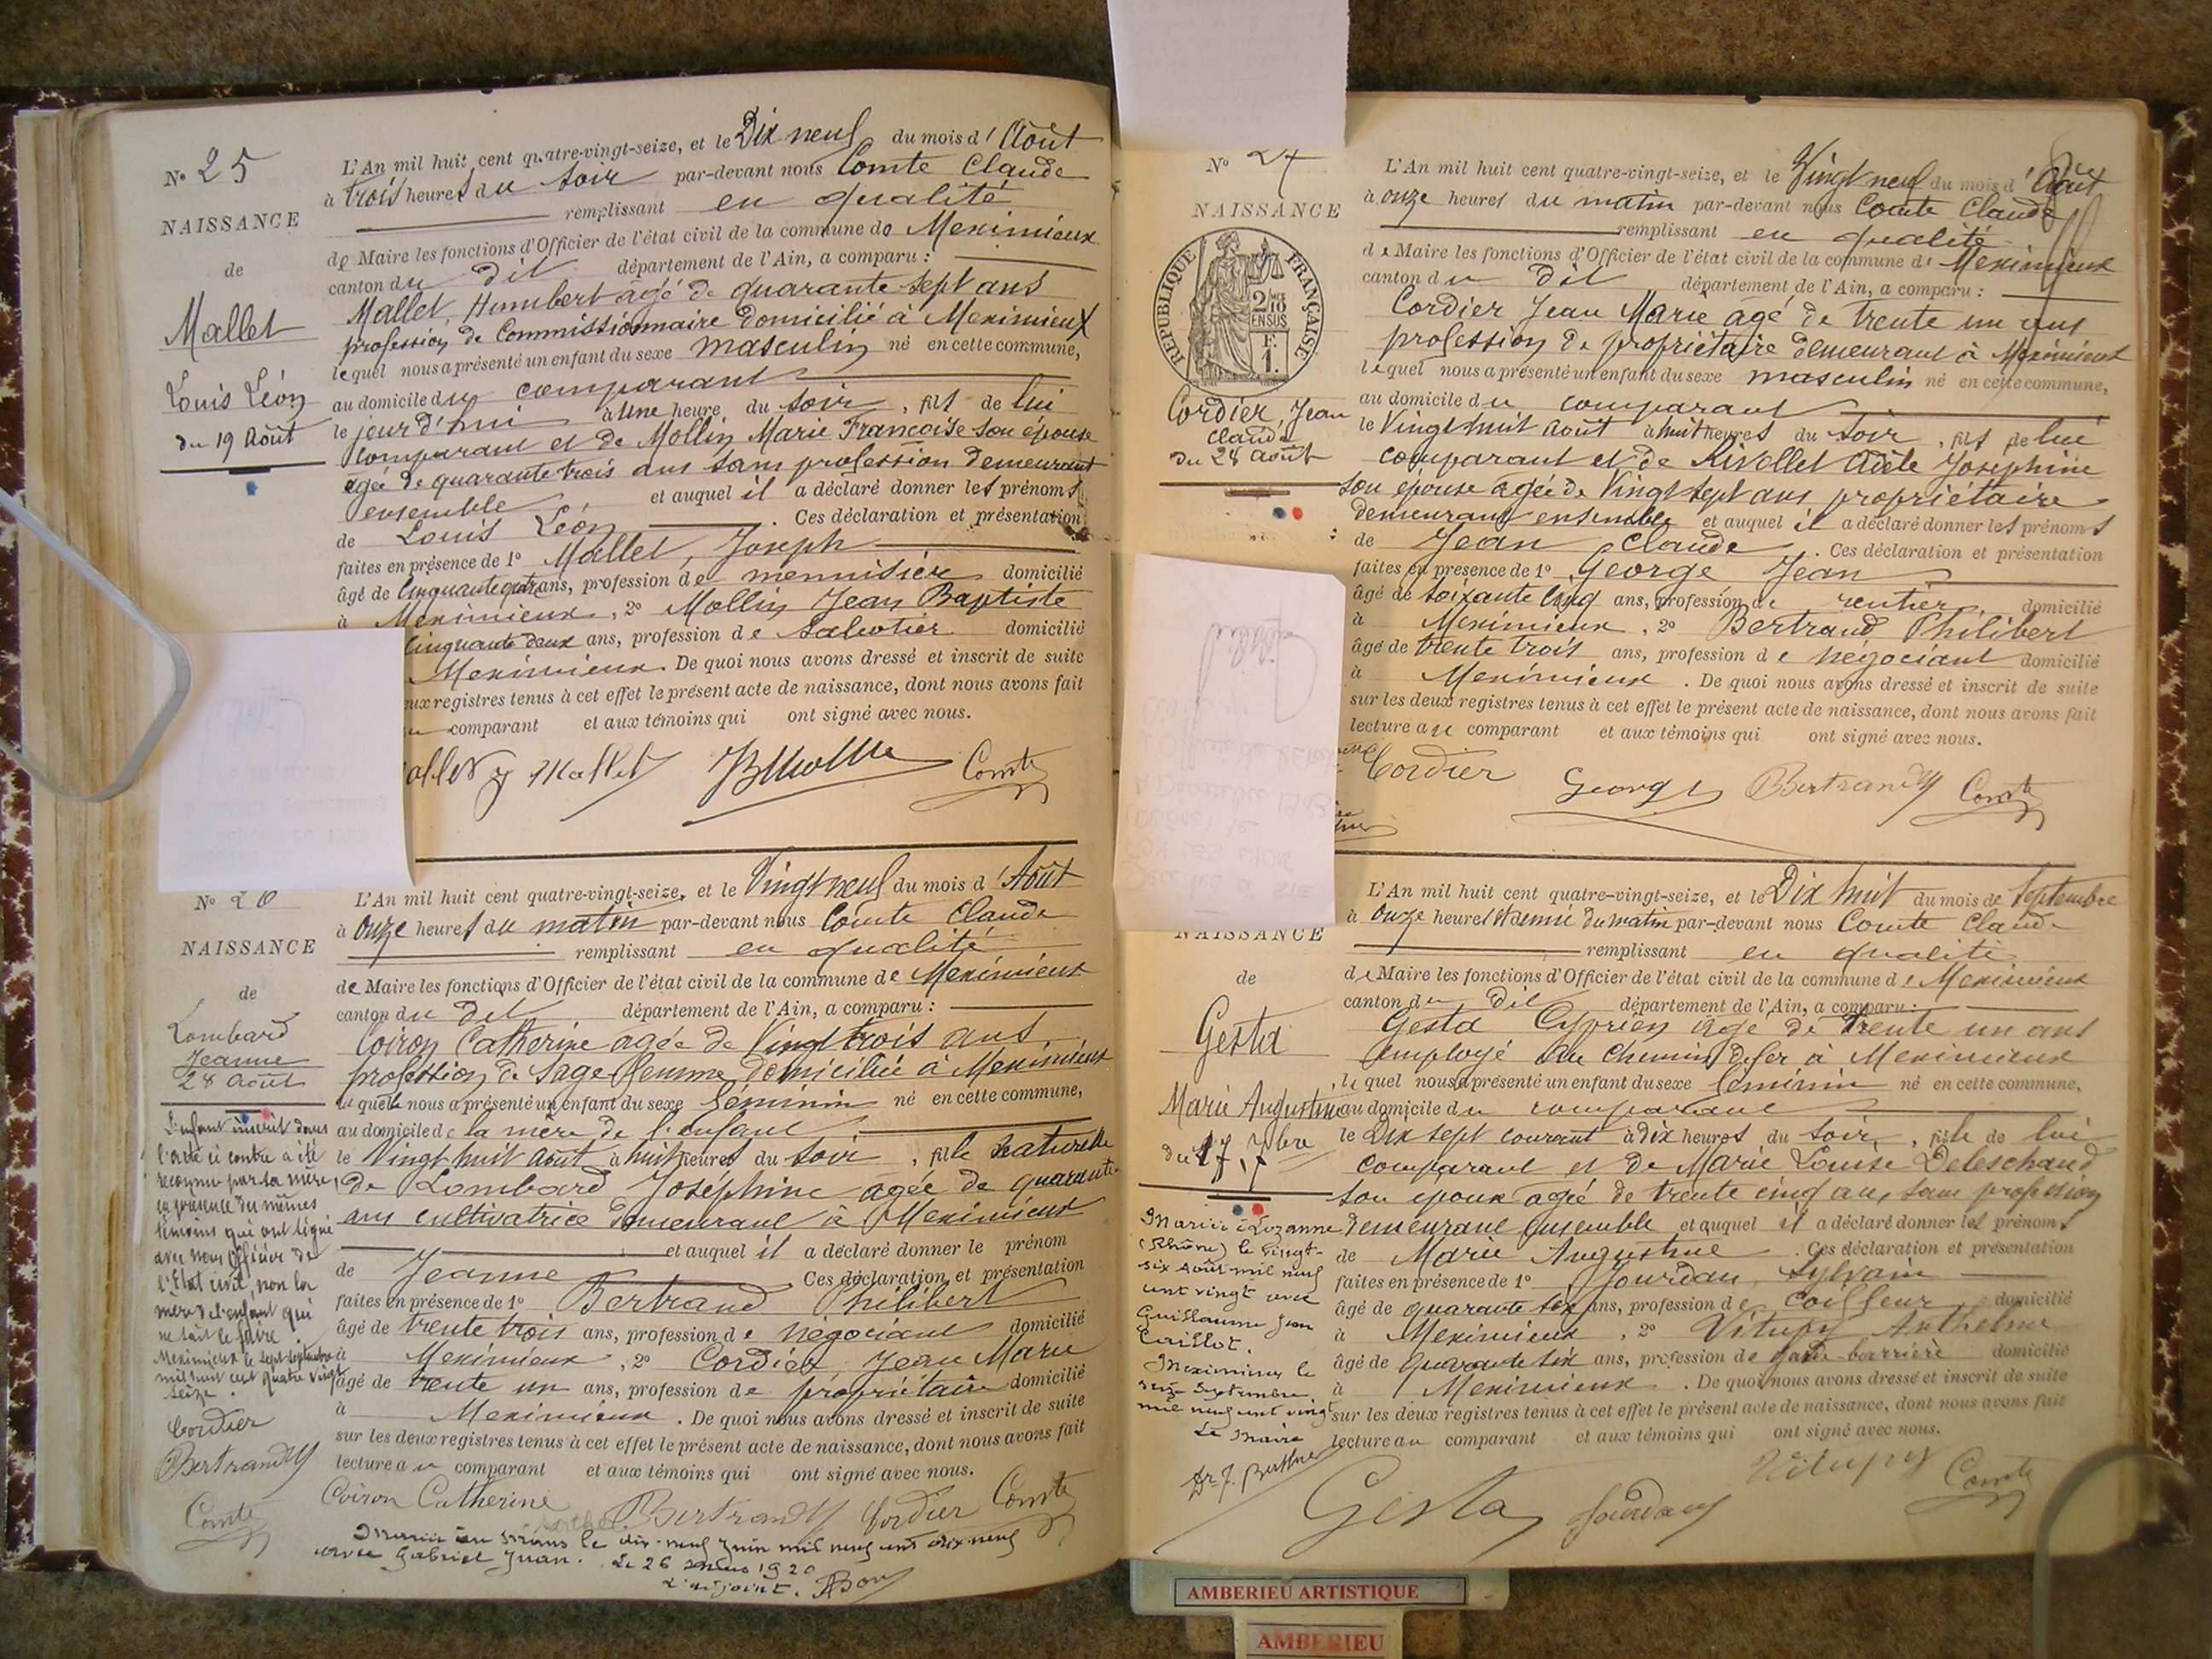 N° 25
NAISSANCE
de
Mallet
Louis Léon
du 19 Août
L'An mil huit cent quatre-vingt-seize, et le Dix neuf du mois d'Août
à trois heures du soir par-devant nous Comte Claude
remplissant en qualité
de Maire les fonctions d'Officier de l'état civil de la commune de Meximieux
canton du dit département de l'Ain, a comparu :
Mallet, Humbert âgé de quarante sept ans
profession de Commissionnaire domicilié à Meximieux
lequel nous a présenté un enfant du sexe masculin né en cette commune,
au domicile du comparant
le jour d'hui à une heure du soir, fils de lui
comparant et de Mollin Marie Françoise son épouse
agée de quarante trois ans sans profession demeurant
ensemble et auquel il a déclaré donner les prénoms
de Louis Léon . Ces déclaration et présentation
faites en présence de 1° Mallet, Joseph
âgé de Cinquante ans, profession de menuisier domicilié
à Meximieux, 2° Mollin Jean Baptiste
Cinquante deux ans, profession de Sabotier domicilié
Meximieux. De quoi nous avons dressé et inscrit de suite
eux registres tenus à cet effet le présent acte de naissance, dont nous avons fait
comparant et aux témoins qui ont signé avec nous.
Mallet JBMollin Comte
N° 26
NAISSANCE
de
Lombard
Jeanne
28 Août
L'enfant inscrit dans
l'acte ci contre a été
reconnu par sa mère
en présence des mêmes
témoins qui ont signé
avec nous Officier de
l'Etat civil, non la
mère de l'enfant qui
ne sait le faire.
Meximieux le sept septembre
mil huit cent quatre vingt
seize.
Cordier
Bertrand
Comte
L'An mil huit cent quatre-vingt-seize, et le Vingt neuf du mois d'Août
à Onze heures du matin par-devant nous Comte Claude
remplissant en qualité
de Maire les fonctions d'Officier de l'état civil de la commune de Meximieux
canton du dit département de l'Ain, a comparu :
Coiron Catherine agée de Vingt trois ans
profession de Sage-femme domiciliée à Meximieux
quelle nous a présenté un enfant du sexe féminin né en cette commune,
au domicile de la mère de l'enfant
le Vingt huit Août à huit heures du soir, fille naturelle
de Lombard Joséphine agée de quarante
ans cultivatrice demeurant à Meximieux
et auquel il a déclaré donner le prénom
de Jeanne Ces déclaration et présentation
faites en présence de 1° Bertrand Philibert
âgé de trente trois ans, profession de négociant domicilié
à Meximieux, 2° Cordier Jean Marie
âgé de trente un ans, profession de propriétaire domicilié
à Meximieux. De quoi nous avons dressé et inscrit de suite
sur les deux registres tenus à cet effet le présent acte de naissance, dont nous avons fait
lecture au comparant et aux témoins qui ont signé avec nous.
Coiron Catherine Bertrand Cordier Comte
Mariée au Mans le dix-neuf Juin mil neuf cent dix-neuf
avec Gabriel Juan. Le 26 1920
L'adjoint.
N° 27
NAISSANCE
REPUBLIQUE FRANÇAISE
2/10
EN SUS
F.
1.
Cordier, Jean
Claude
du 28 Août
L'An mil huit cent quatre-vingt-seize, et le Vingt neuf du mois d'Août
à onze heures du matin par-devant nous Comte Claude
remplissant en qualité
de Maire les fonctions d'Officier de l'état civil de la commune de Meximieux
canton du dit département de l'Ain, a comparu :
Cordier Jean Marie âgé de trente un ans
profession de propriétaire demeurant à Meximieux
lequel nous a présenté un enfant du sexe masculin né en cette commune,
au domicile du comparant
le Vingt huit Août à huit heures du soir, fils de lui
comparant et de Rivollet Adèle Josephine
son épouse agée de Vingt sept ans propriétaire
demeurant ensemble et auquel il a déclaré donner les prénoms
de Jean Claude . Ces déclaration et présentation
faites en présence de 1° George Jean
âgé de soixante cinq ans, profession de rentier, domicilié
à Meximieux, 2° Bertrand Philibert
âgé de trente trois ans, profession de négociant domicilié
à Meximieux. De quoi nous avons dressé et inscrit de suite
sur les deux registres tenus à cet effet le présent acte de naissance, dont nous avons fait
lecture au comparant et aux témoins qui ont signé avec nous.
Cordier George Bertrand Comte
NAISSANCE
de
Gesta
Marie Augustine
du 17 7bre
Mariée à Lozanne
(Rhône) le vingt-
six Août mil neuf
cent vingt avec
Guillaume Jean
Caillot.
Meximieux le
seize Septembre
mil neuf cent vingt
Le Maire
Dr J. Berthier
L'An mil huit cent quatre-vingt-seize, et le Dix huit du mois de Septembre
à Onze heures et demie du matin par-devant nous Comte Claude
remplissant en qualité
de Maire les fonctions d'Officier de l'état civil de la commune de Meximieux
canton du dit département de l'Ain, a comparu :
Gesta Cyprien âgé de trente un ans
employé au chemin de fer à Meximieux
lequel nous a présenté un enfant du sexe féminin né en cette commune,
au domicile du comparant
le Dix sept courant à dix heures du soir, fille de lui
comparant et de Marie Louise Deleschaud
son épouse agée de trente cinq ans, sans profession
demeurant ensemble et auquel il a déclaré donner les prénoms
de Marie Augustine . Ces déclaration et présentation
faites en présence de 1° Jourdan Sylvain
âgé de quarante six ans, profession de coiffeur domicilié
à Meximieux, 2° Vitupy Anthelme
âgé de quarante six ans, profession de garde-barrière domicilié
à Meximieux. De quoi nous avons dressé et inscrit de suite
sur les deux registres tenus à cet effet le présent acte de naissance, dont nous avons fait
lecture au comparant et aux témoins qui ont signé avec nous.
Gesta Jourdan Vitupy Comte
AMBERIEU ARTISTIQUE
AMBERIEU